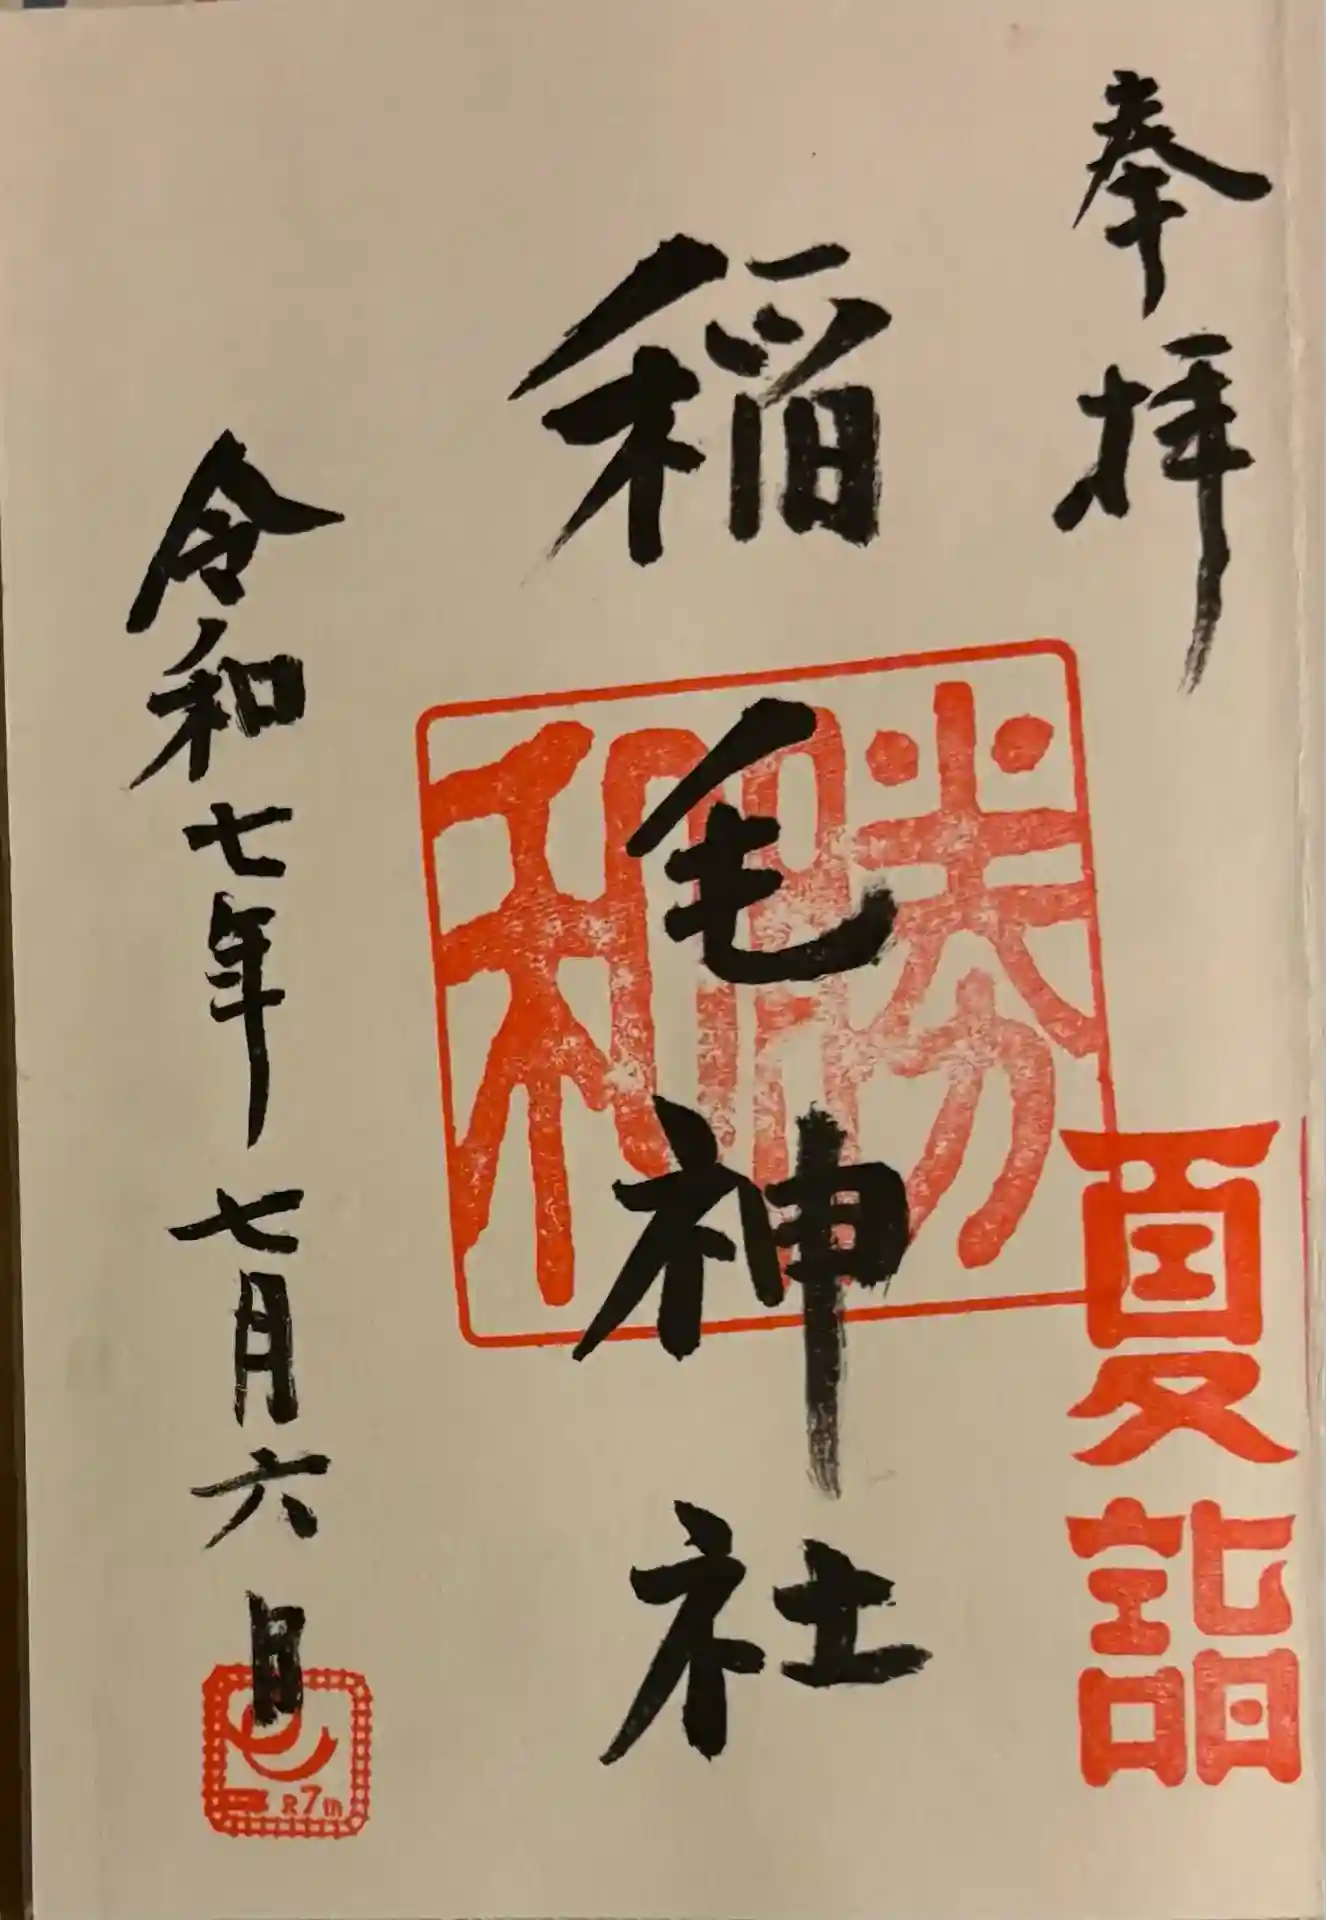 奉拝
夏詣
稲毛神社
勝和
令和七年七月六日
R7th